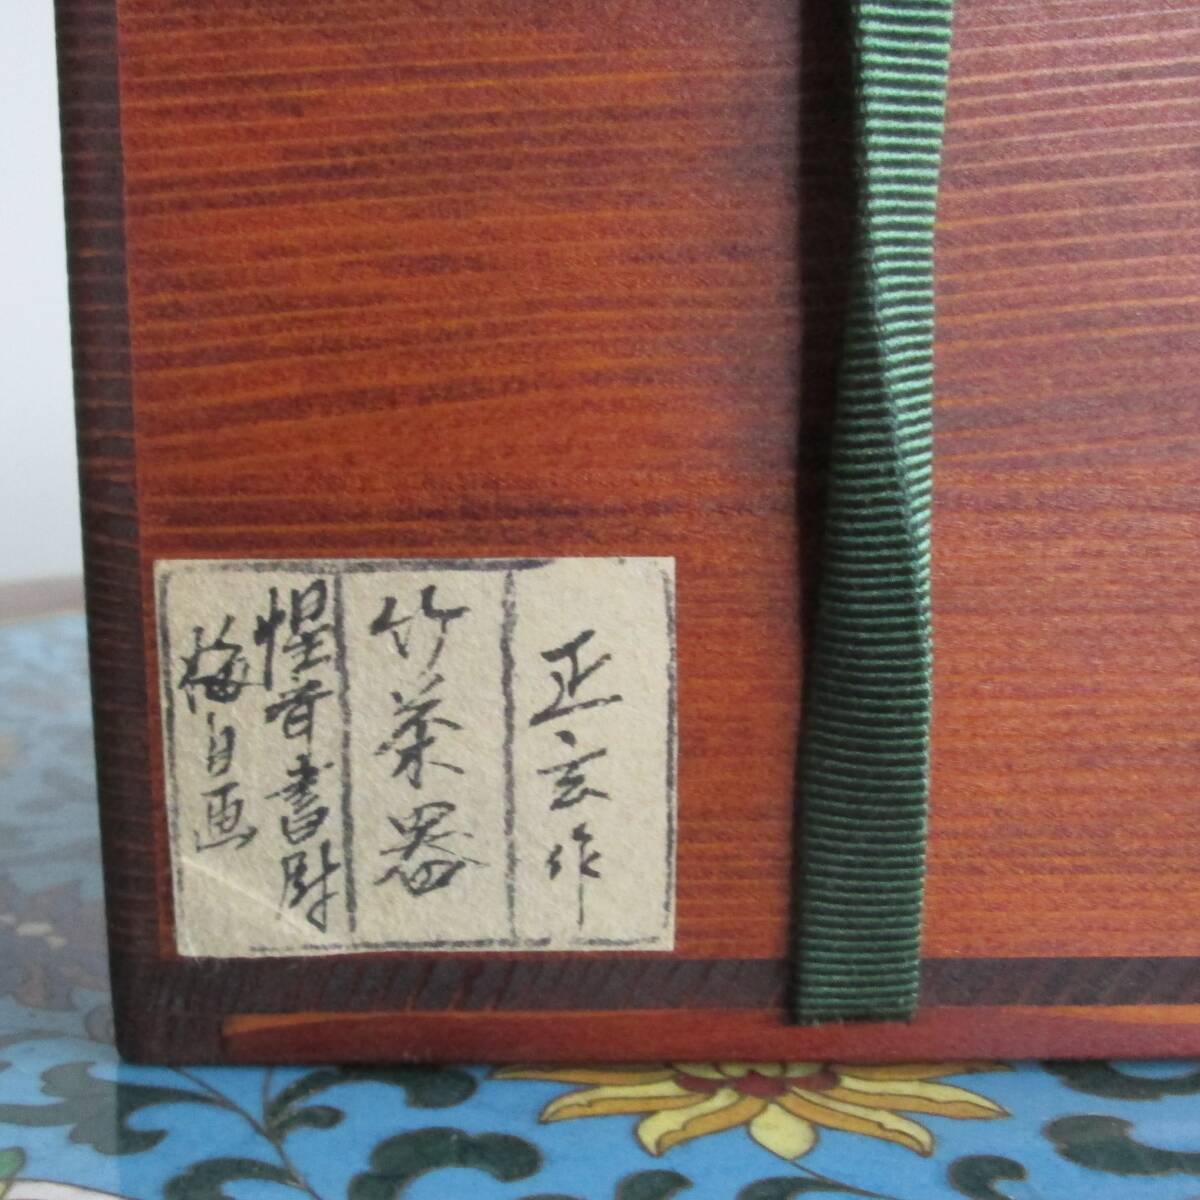 正玄作
竹茶器
惺斎書附
梅自画